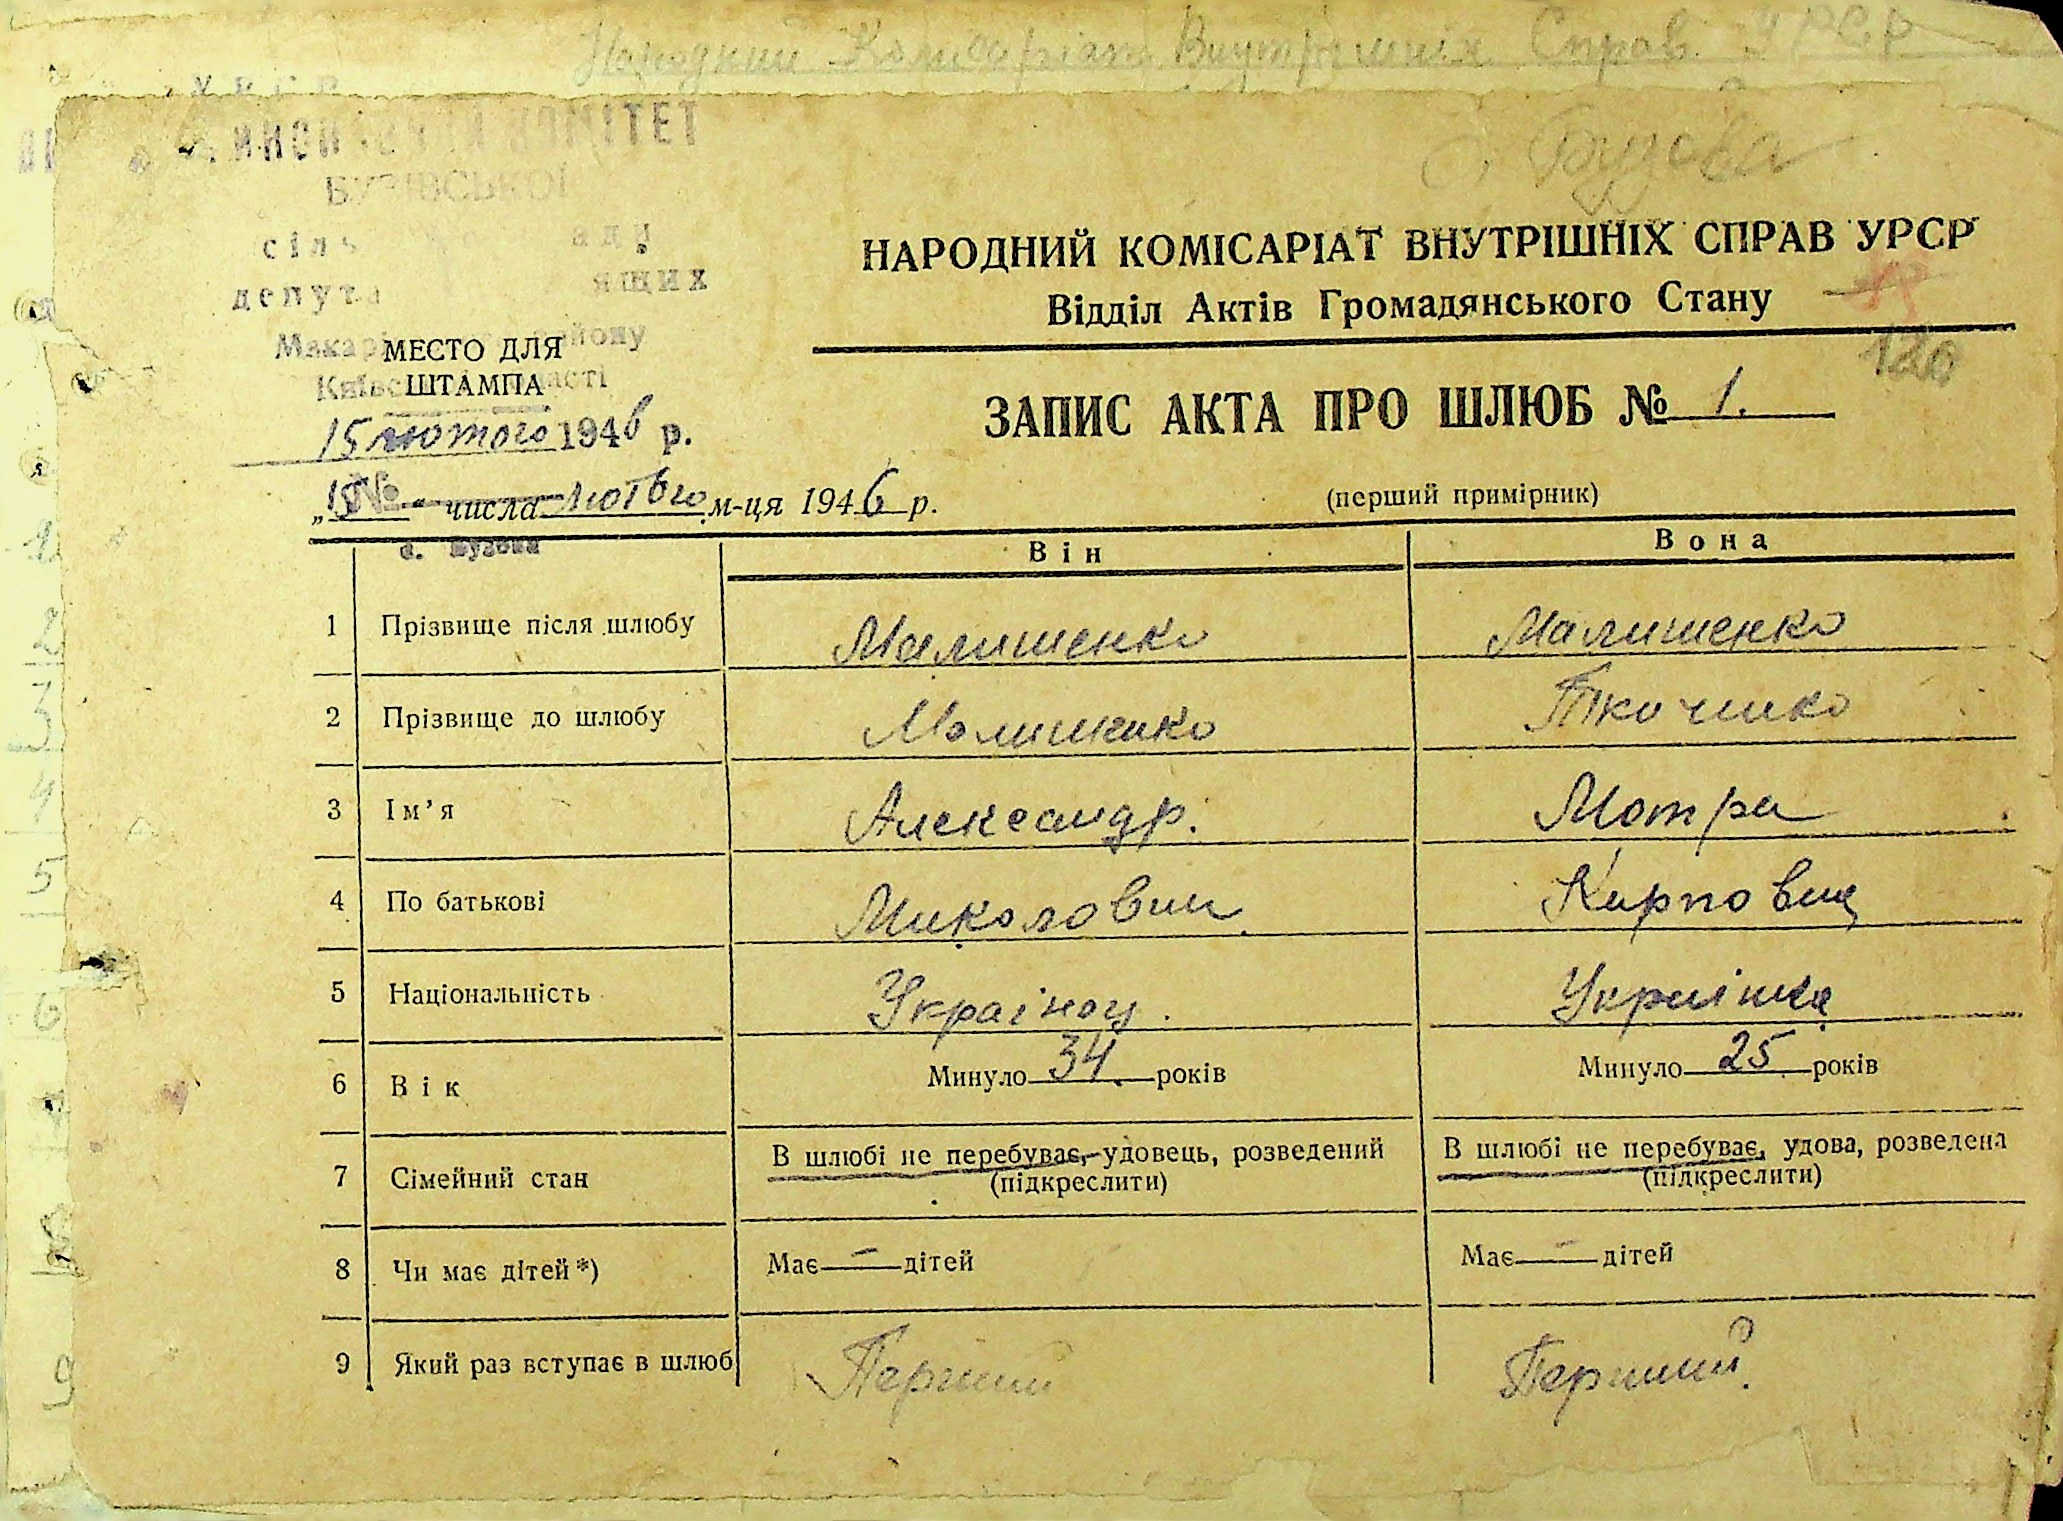 Народний Комісаріат Внутрішніх Справ УРСР
УРСР
КОМІТЕТ
БУЗІВСЬКОЇ
с. Бузова
НАРОДНИЙ КОМІСАРІАТ ВНУТРІШНІХ СПРАВ УРСР
Відділ Актів Громадянського Стану
120
МЕСТО ДЛЯ
ШТАМПА
15 лютого 1946 р.
ЗАПИС АКТА ПРО ШЛЮБ № 1.
„15“ числа лютого м-ця 1946 р.
(перший примірник)
с. Бузова
Він Вона
1 Прізвище після шлюбу Малишенко Малишенко
2 Прізвище до шлюбу Малишенко Ткаченко
3 Ім’я Александр. Мотра
4 По батькові Миколович Карповна
5 Національність Українець. Українка
6 Вік Минуло 34 років Минуло 25 років
7 Сімейний стан В шлюбі не перебуває, удовець, розведений В шлюбі не перебуває, удова, розведена
(підкреслити) (підкреслити)
8 Чи має дітей *) Має — дітей Має — дітей
9 Який раз вступає в шлюб Перший Перший.
1
2
3
4
5
6
9